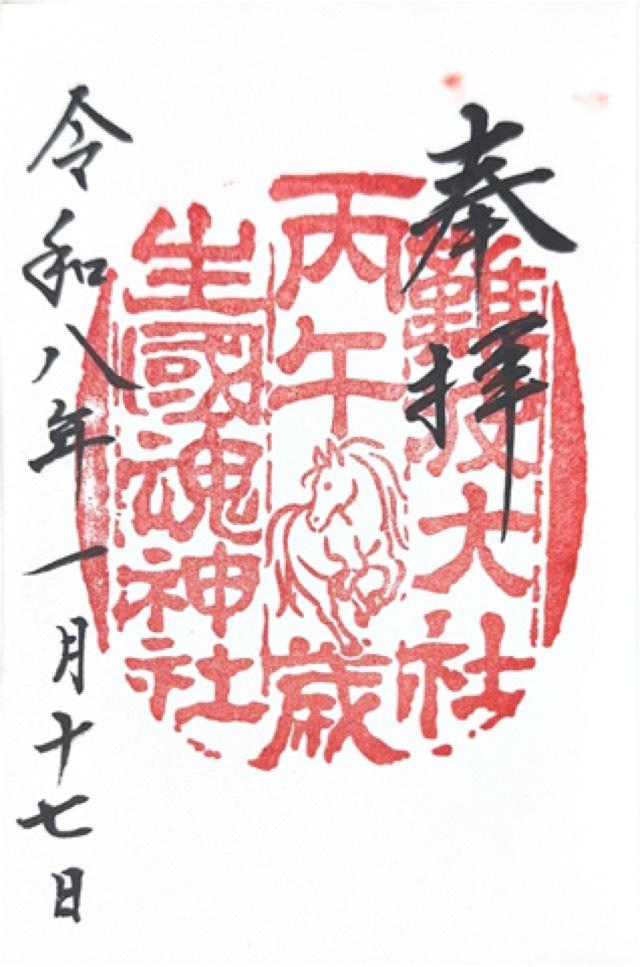 奉拝
難波大社
丙午歳
生國魂神社
令和八年一月十七日